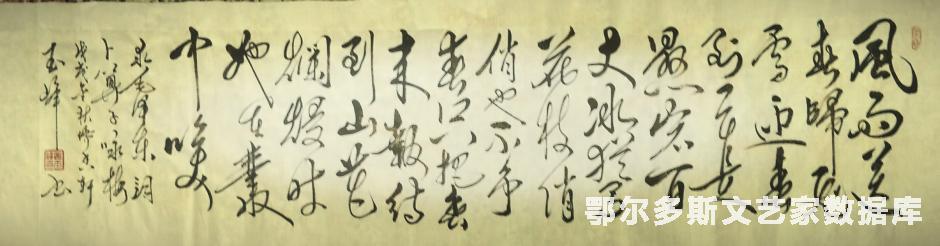 風雨送
春歸飛
雪迎春
到已是
懸崖百
丈冰猶有
花枝俏
俏也不争
春只把春
来報待
到山花
爛熳时
她在叢
中咲
录毛泽东词
卜算子咏梅
戊戌年秋
玉峰书
鄂尔多斯文艺家数据库